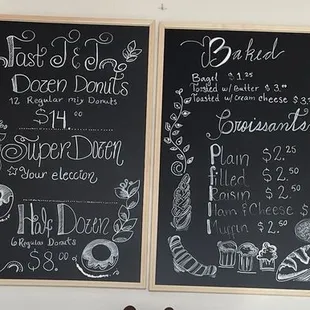 Fast J & J
Dozen Donuts
12 Regular mix Donuts
$14.00
Super Dozen
Your eleccion
Half Dozen
6 Regular Donuts
$8.00
Baked
Bagel $1.25
Toasted w/ Butter $3.00
Toasted w/ cream cheese $3.
Croissants
Plain $2.25
filled $2.50
Raisin $2.50
Ham & Cheese $
Muffin $2.50